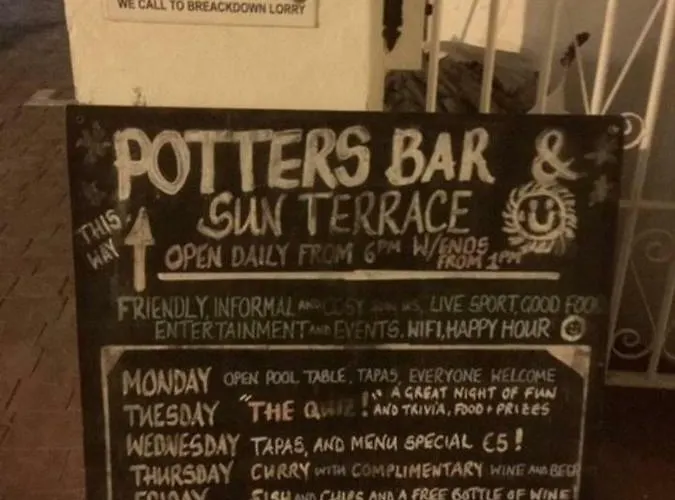 WE CALL TO BREACKDOWN LORRY
POTTERS BAR &
SUN TERRACE
THIS WAY
OPEN DAILY FROM 6PM W/ENDS FROM 1PM
FRIENDLY, INFORMAL AND COSY US, LIVE SPORT, GOOD FOOD
ENTERTAINMENT AND EVENTS. WIFI, HAPPY HOUR
MONDAY OPEN POOL TABLE, TAPAS, EVERYONE WELCOME
TUESDAY "THE QUIZ!" A GREAT NIGHT OF FUN AND TRIVIA, FOOD + PRIZES
WEDNESDAY TAPAS, AND MENU SPECIAL €5!
THURSDAY CURRY WITH COMPLIMENTARY WINE AND BEER
FRIDAY FISH AND CHIPS AND A FREE BOTTLE OF WINE!